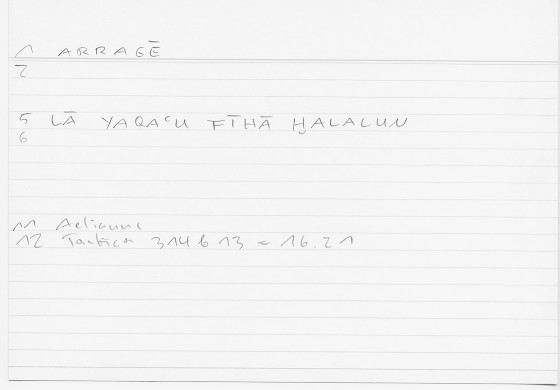 1 ARRAGĒ
2
5 LĀ YAQAʿU FĪHĀ ḪALALUN
6
11 Aelianus
12 Tactica 314 b 13 = 16.21